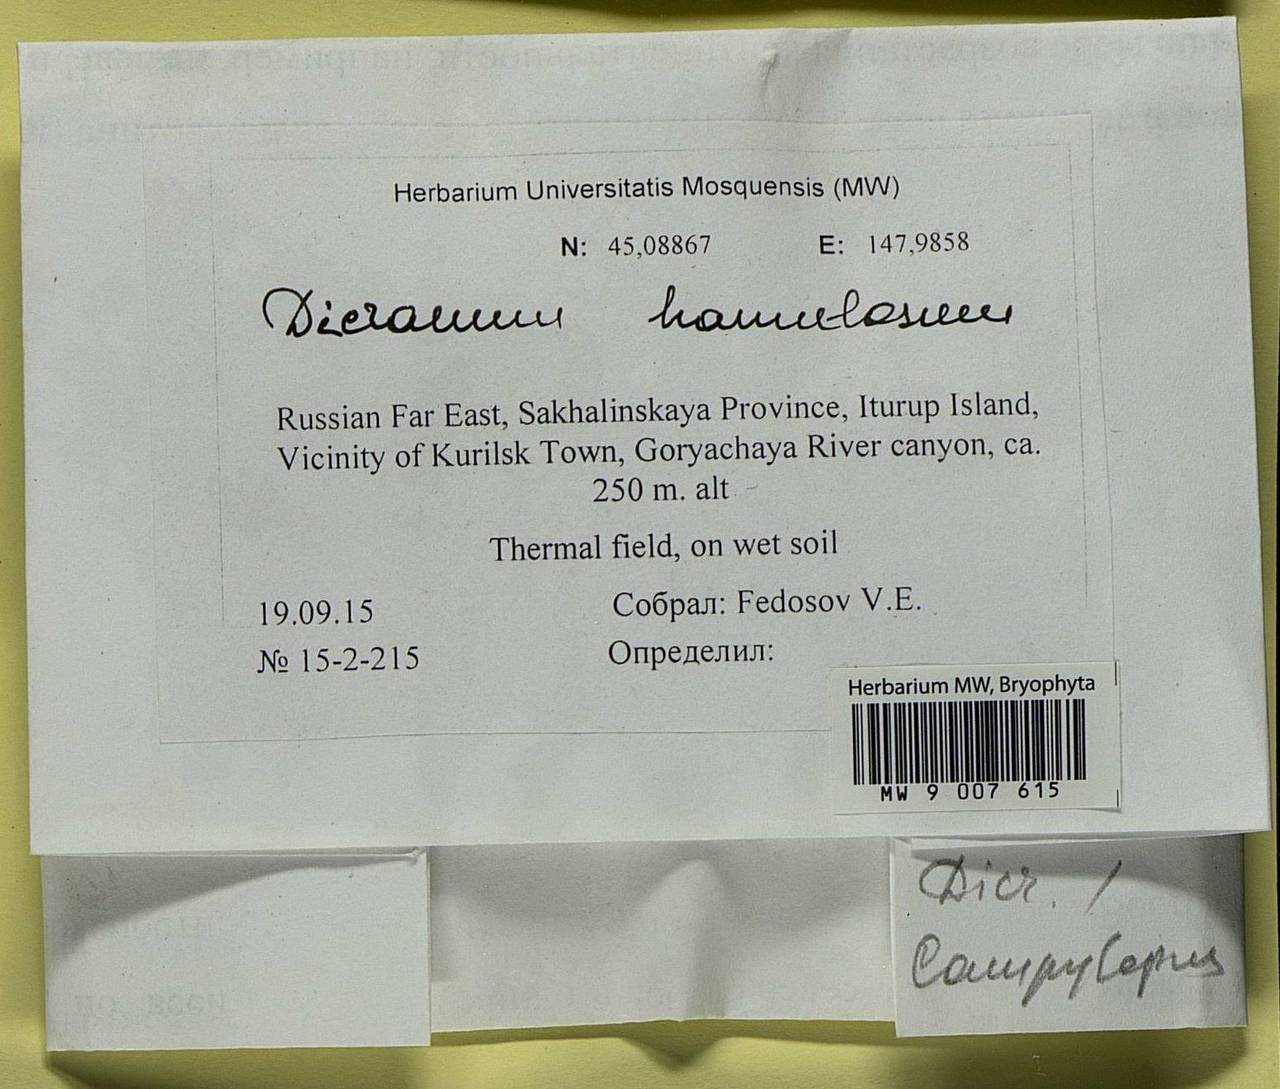 Herbarium Universitatis Mosquensis (MW)
N: 45,08867 E: 147,9858
Dicranum hamulosum
Russian Far East, Sakhalinskaya Province, Iturup Island,
Vicinity of Kurilsk Town, Goryachaya River canyon, ca.
250 m. alt
Thermal field, on wet soil
19.09.15 Собрал: Fedosov V.E.
№ 15-2-215 Определил:
Herbarium MW, Bryophyta
MW 9 007 615
Dicr. /
Campylopus